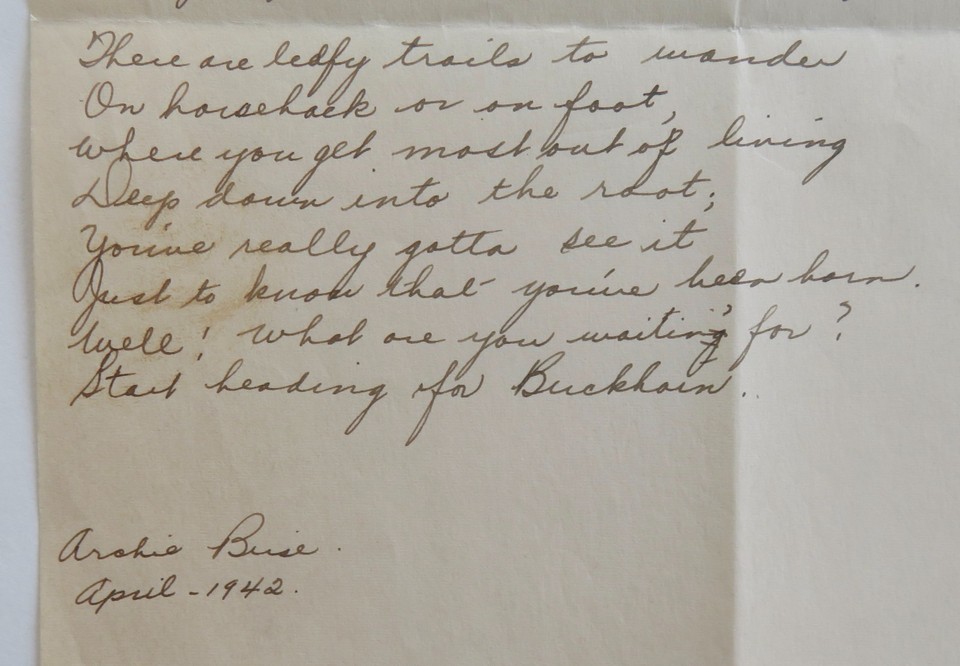 There are leafy trails to wander
On horseback or on foot,
Where you get most out of living
Deep down into the root;
You've really gotta see it
Just to know that you've been born.
Well! What are you waiting for?
Start heading for Buckhorn.
Archie Buie.
April - 1942.